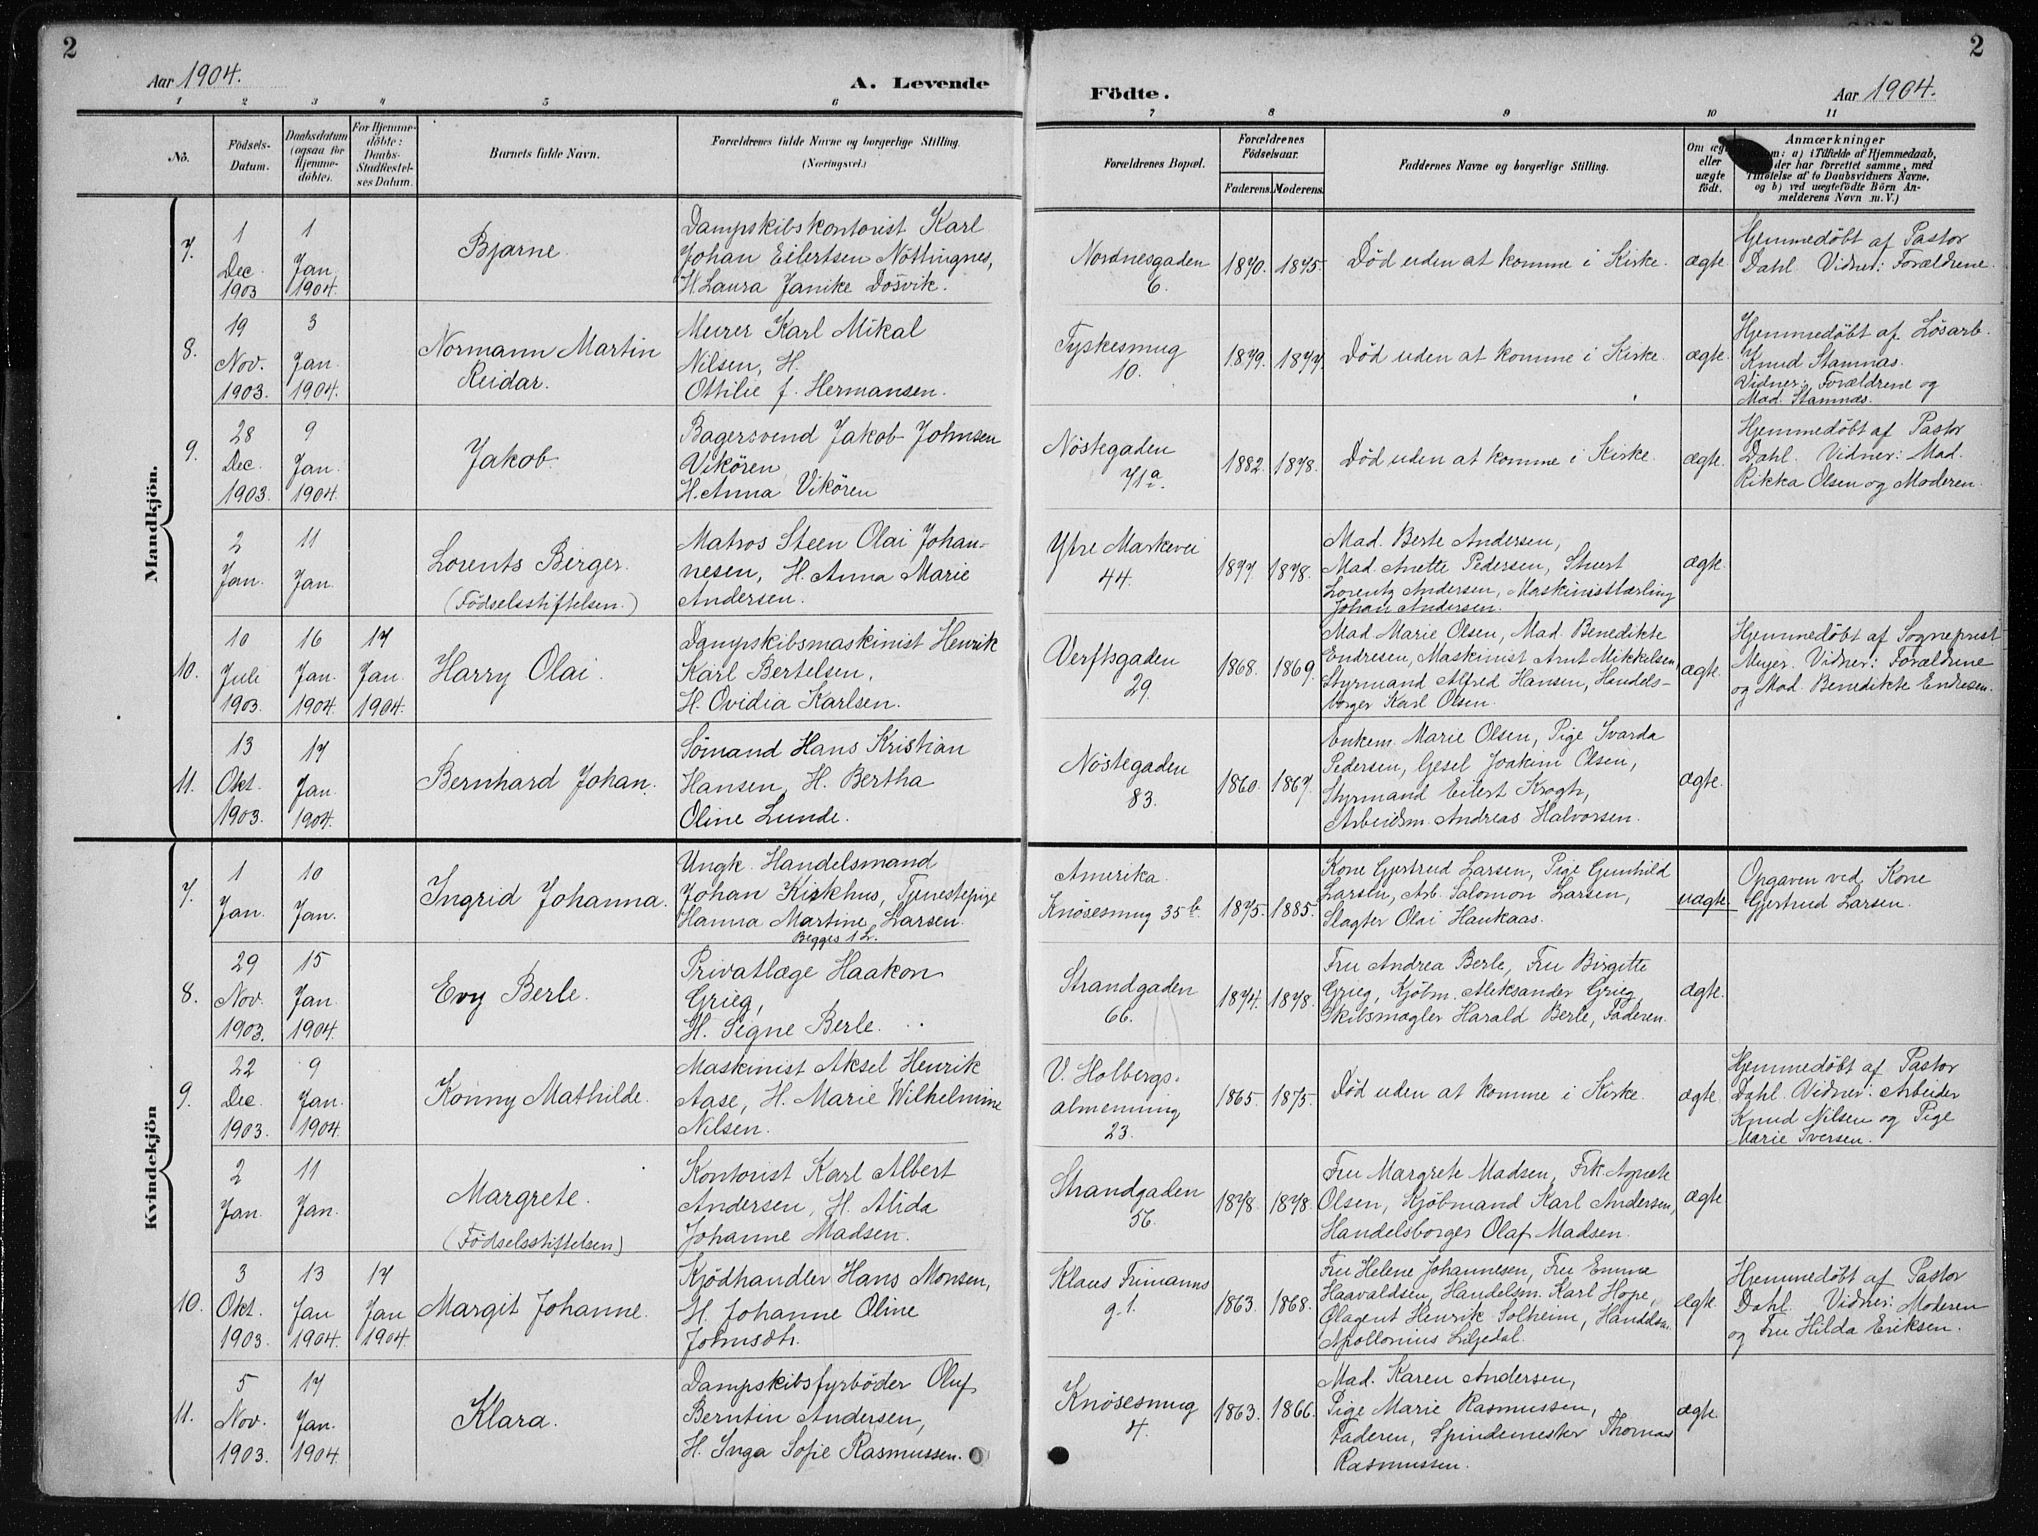 2
Aar 1904.
A. Levende
1 2 3 4 5 6
No.
Födsels-
Datum.
Daabsdatum
(ogsaa for
Hjemme-
döbte).
For Hjemme-
döbte:
Daabs-
Stadfæstel-
ses Datum.
Barnets fulde Navn.
Forældrenes fulde Navne og borgerlige Stilling.
(Næringsvei.)
Mandkjön.
7.
1
Dec.
1903
1
Jan.
1904.
Bjarne.
Dampskibskontorist Karl
Johan Eilertsen Nöttingnes,
H. Laura Janike Dösvik.
8.
19
Nov.
1903.
3
Jan.
1904.
Normann Martin
Reidar.
Murer Karl Mikal
Nilsen, H.
Ottilie f. Hermansen.
9.
28
Dec.
1903.
9
Jan.
1904.
Jakob.
Bagersvend Jakob Johnsen
Vikören
H. Anna Vikören
2
Jan.
11
Jan.
Lorents Birger.
(Födselsstiftelsen.)
Matros Steen Olai Johan-
nesen, H. Anna Marie
Andersen.
10.
10
Juli
1903.
16
Jan.
1904.
17
Jan.
1904.
Harry Olai.
Dampskibsmaskinist Henrik
Karl Bertelsen,
H. Ovidia Karlsen.
11.
13
Okt.
1903.
17
Jan.
1904.
Bernhard Johan.
Sömand Hans Kristian
Hansen, H. Bertha
Oline Lunde.
Kvindekjön
7.
1
Jan.
10
Jan.
Ingrid Johanna.
Ungk. Handelsmand
Johan Kirkhus, Tjenestepige
Hanna Martine Larsen.
Begges 1 L.
8.
29
Nov.
1903.
15
Jan.
1904.
Evy Berle.
Privatlæge Haakon
Grieg,
H. Signe Berle.
9.
22
Dec.
1903.
9
Jan.
1904.
Konny Mathilde.
Maskinist Aksel Henrik
Aase, H. Marie Wilhelmine
Nilsen.
2
Jan.
11
Jan.
Margrete.
(Födselsstiftelsen)
Kontorist Karl Albert
Andersen, H. Alida
Johanne Madsen.
10.
3
Okt.
1903.
13
Jan
1904.
17
Jan
1904.
Margit Johanne.
Kjödhandler Hans Monsen,
H. Johanne Oline
Johnsdtr.
11.
5
Nov.
1903.
17
Jan.
1904.
Klara.
Dampskibsfyrböder Oluf
Berntin Andersen,
H. Inga Sofie Rasmussen.
2
Födte.
Aar 1904.
7 8 9 10 11
Forældrenes Bopæl.
Forældrenes
Födselsaar.
Faderens. Moderens.
Faddernes Navne og borgerlige Stilling.
Om ægte
eller
uægte
födt.
Anmærkninger
a) i Tilfælde af Hjemmedaab,
der har forrettet samme, med
Tilföielse af to Daabsvidners Navne,
og b) ved uægtefödte Börn An-
melderens Navn m. V.)
Nordnesgaden
6.
1870. 1875.
Död uden at komme i Kirke.
ægte
Hjemmedöbt af Pastor
Dahl. Vidner: Forældrene.
Tyskesmug
10.
1879. 1877.
Död uden at komme i Kirke.
ægte.
Hjemmedöbt af Lösarb.
Knud Stamnas.
Vidner: Forældrene og
Mad. Stamnæs.
Nöstegaden
71a.
1882. 1878.
Död uden at komme i Kirke.
ægte.
Hjemmedöbt af Pastor
Dahl. Vidner: Mad.
Rikka Olsen og Moderen.
Ytre Markevei
44.
1877. 1878.
Mad. Berte Andersen,
Mad. Anette Pedersen, Stuert
Lorentz Andersen, Maskinistlærling
Johan Andersen.
ægte.
Verftsgaden
29.
1868. 1869.
Mad. Marie Olsen, Mad. Benedikte
Endresen, Maskinist Arnt Mikkelsen,
Styrmand Alfred Hansen, Handels-
borger Karl Olsen.
ægte.
Hjemmedöbt af Sogneprest
Meyer. Vidner: Forældrene
og Mad. Benedikte Endresen.
Nöstegaden
83.
1860. 1867.
Enkem. Marie Olsen, Pige Svarda
Pedersen, Gesel Joakim Olsen,
Styrmand Eilert Krogh,
Arbeidsm. Andreas Halvorsen.
ægte.
Amerika.
Knösesmug 35b.
1875. 1885.
Kone Gjertrud Larsen, Pige Gunhild
Larsen, Arb. Salomon Larsen,
Slagter Olai Haukaas.
uægte.
Opgaven ved Kone
Gjertrud Larsen.
Strandgaden
66.
1874. 1878.
Fru Andrea Berle, Fru Birgitte
Grieg, Kjöbm. Aleksander Grieg,
Skibsmægler Harald Berle, Faderen.
ægte.
V. Holbergs-
almenning
23.
1865. 1875.
Död uden at komme i Kirke.
ægte.
Hjemmedöbt af Pastor
Dahl. Vidner: Arbeider
Knud Nilsen og Pige
Marie Iversen.
Strandgaden
56.
1878. 1878.
Fru Margrete Madsen, Frk Agnete
Olsen, Kjöbmand Karl Andersen,
Handelsborger Olaf Madsen.
ægte.
Klaus Frimanns
g. 1.
1863. 1868.
Fru Helene Johannesen, Fru Emma
Haavaldsen, Handelsm. Karl Hope,
Ölagent Henrik Solheim, Handelsm.
Apollonius Liljedal.
ægte.
Hjemmedöbt af Pastor
Dahl. Vidner: Moderen
og Fru Hilda Eriksen.
Knösesmug
4.
1863. 1866.
Mad. Karen Andersen,
Pige Marie Rasmussen,
Faderen, Spindemester Thomas
Rasmussen.
ægte.